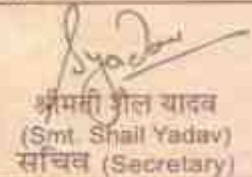 श्रीमती शैल यादव
(Smt. Shail Yadav)
सचिव (Secretary)